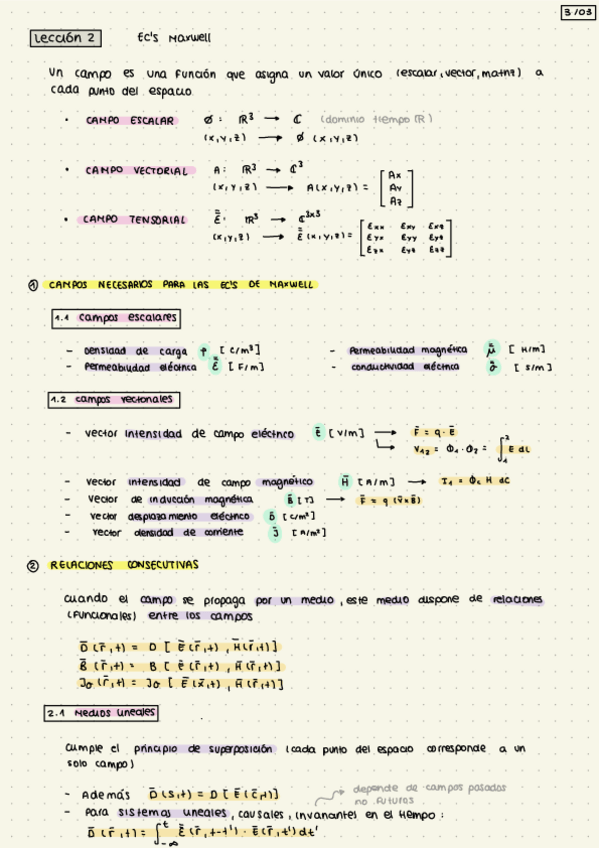 3/03
Lección 2 Ec's Maxwell
Un campo es una función que asigna un valor único (escalar, vector, matriz) a
cada punto del espacio
• CAMPO ESCALAR Ø : ℝ³ → ℂ (dominio tiempo ℝ)
(x,y,z) → Ø (x,y,z)
• CAMPO VECTORIAL A : ℝ³ → ℂ³
(x,y,z) → A(x,y,z) = [Ax Ay Az]
• CAMPO TENSORIAL ε̿ : ℝ³ → ℂ³ˣ³
(x,y,z) → ε̿ (x,y,z) = [εxx εxy εxz εyx εyy εyz εzx εzy εzz]
① CAMPOS NECESARIOS PARA LAS EC'S DE MAXWELL
1.1 campos escalares
- Densidad de carga ρ [C/m³] - Permeabilidad magnética μ̿ [H/m]
- Permeabilidad eléctrica ε̿ [F/m] - conductividad eléctrica σ̿ [S/m]
1.2 campos vectoriales
- vector intensidad de campo eléctrico Ē [V/m] → F̄ = q · Ē
V₁₂ = Φ₁ - Φ₂ = ∫₁² E dL
- vector intensidad de campo magnético H̄ [A/m] → I₁ = ∮c H dC
- vector de inducción magnética B̄ [T] → F̄ = q (v̄ × B̄)
- vector desplazamiento eléctrico D̄ [C/m²]
- vector densidad de corriente J̄ [A/m²]
② RELACIONES CONSECUTIVAS
Cuando el campo se propaga por un medio, este medio dispone de relaciones
(funcionales) entre los campos
D̄ (r̄,t) = D [ Ē(r̄,t) , H̄(r̄,t)]
B̄ (r̄,t) = B [ Ē (r̄,t) , H̄(r̄,t)]
Jσ (r̄,t) = Jσ [ Ē (r̄,t) , H̄ (r̄,t)]
2.1 Medios lineales
Cumple el principio de superposición (cada punto del espacio corresponde a un
solo campo)
- Además D̄ (s,t) = D [ Ē (c̄,t)]
depende de campos pasados
no futuros
- Para sistemas lineales, causales, invariantes en el tiempo:
D̄ (r̄,t) = ∫₋∞ᵗ ε̿ (r̄, t-t') · Ē(r̄,t') dt'